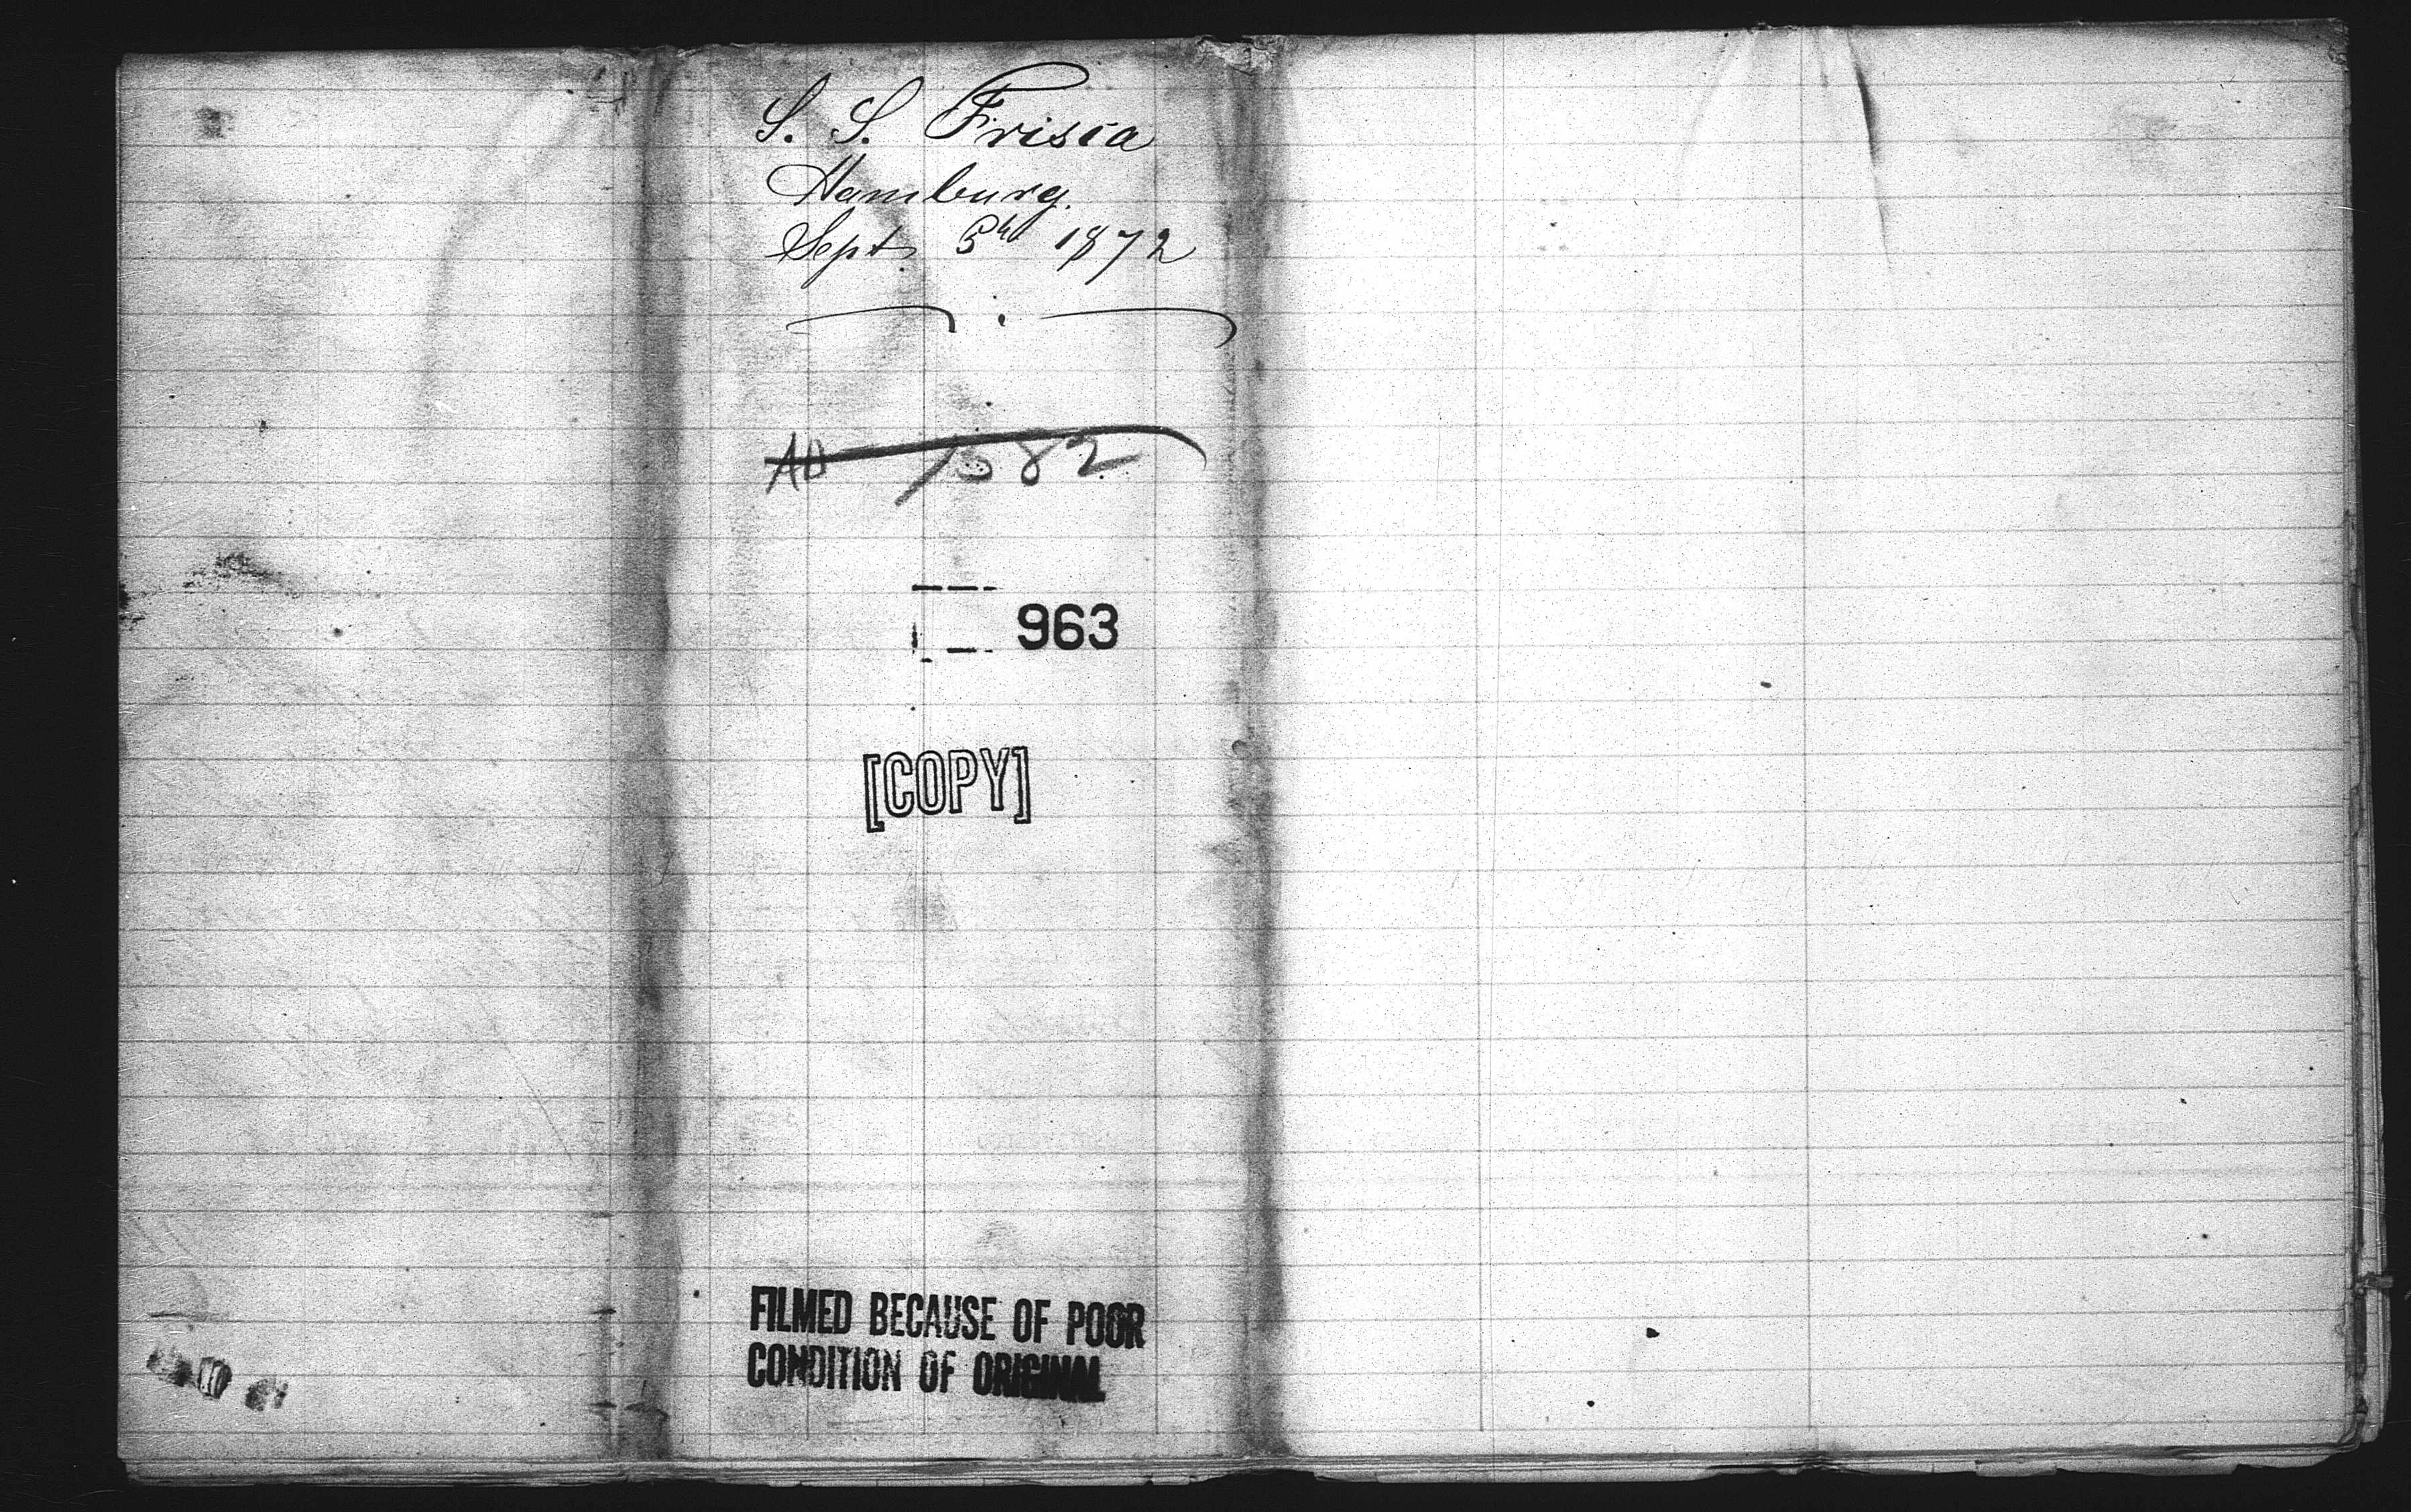 S. S. Frisia
Hamburg.
Sept. 5th 1872
963
[COPY]
FILMED BECAUSE OF POOR
CONDITION OF ORIGINAL